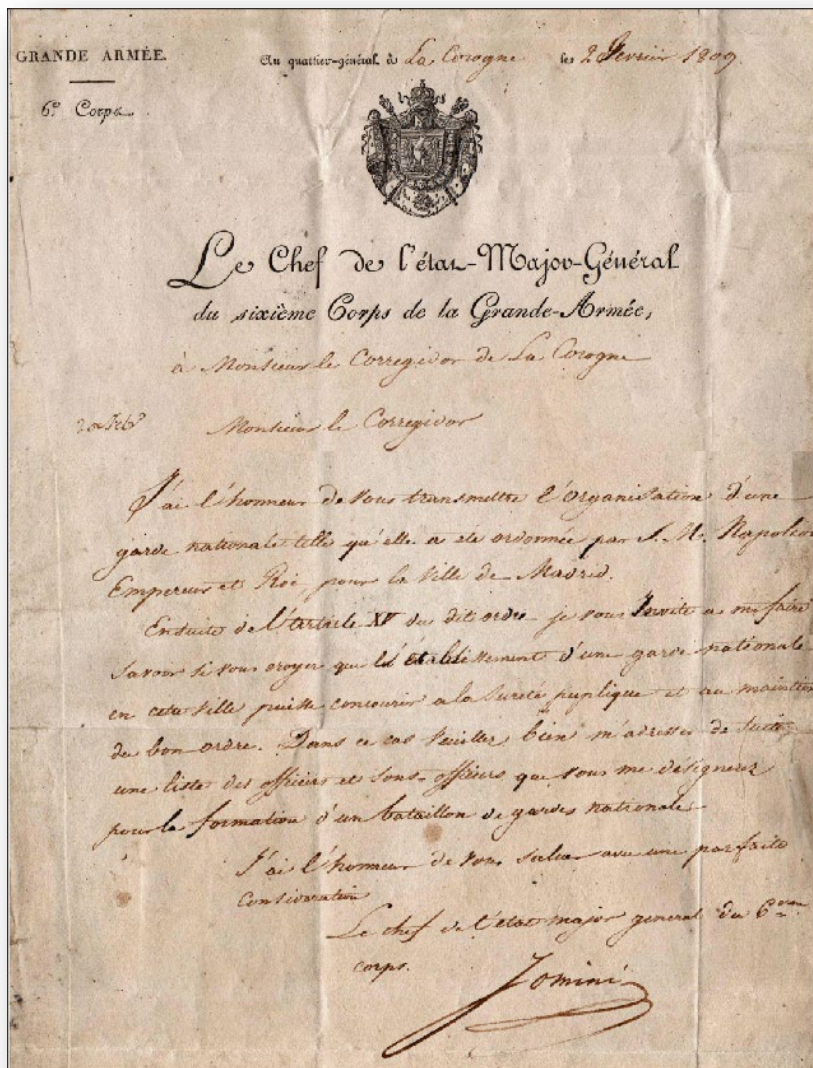 GRANDE ARMÉE.
Au quartier-général à La Corogne le 2 Fevrier 1809
6e Corps
Le Chef de l'état-Major-Général
du sixième Corps de la Grande-Armée,
à Monsieur le Corregidor de La Corogne
Monsieur le Corregidor
J'ai l'honneur de vous transmettre l'Organisation d'une
garde nationale telle qu'elle a été ordonnée par S. M. Napoléon
Empereur et Roi, pour la Ville de Madrid.
Ensuite de l'article XV du dit ordre je vous Invite a me faire
Savoir si vous croyez que l'établissement d'une garde nationale
en cette Ville puisse concourir a la Sureté puplique et au maintien
du bon ordre. Dans ce cas Veuillez bien m'adresser de Suite
une liste des officiers et Sous-officiers que vous me désignerez
pour la formation d'un bataillon de gardes nationales
J'ai l'honneur de vous saluer avec une parfaite
Consideration
Le chef de l'état major general du 6eme
corps.
Jomini